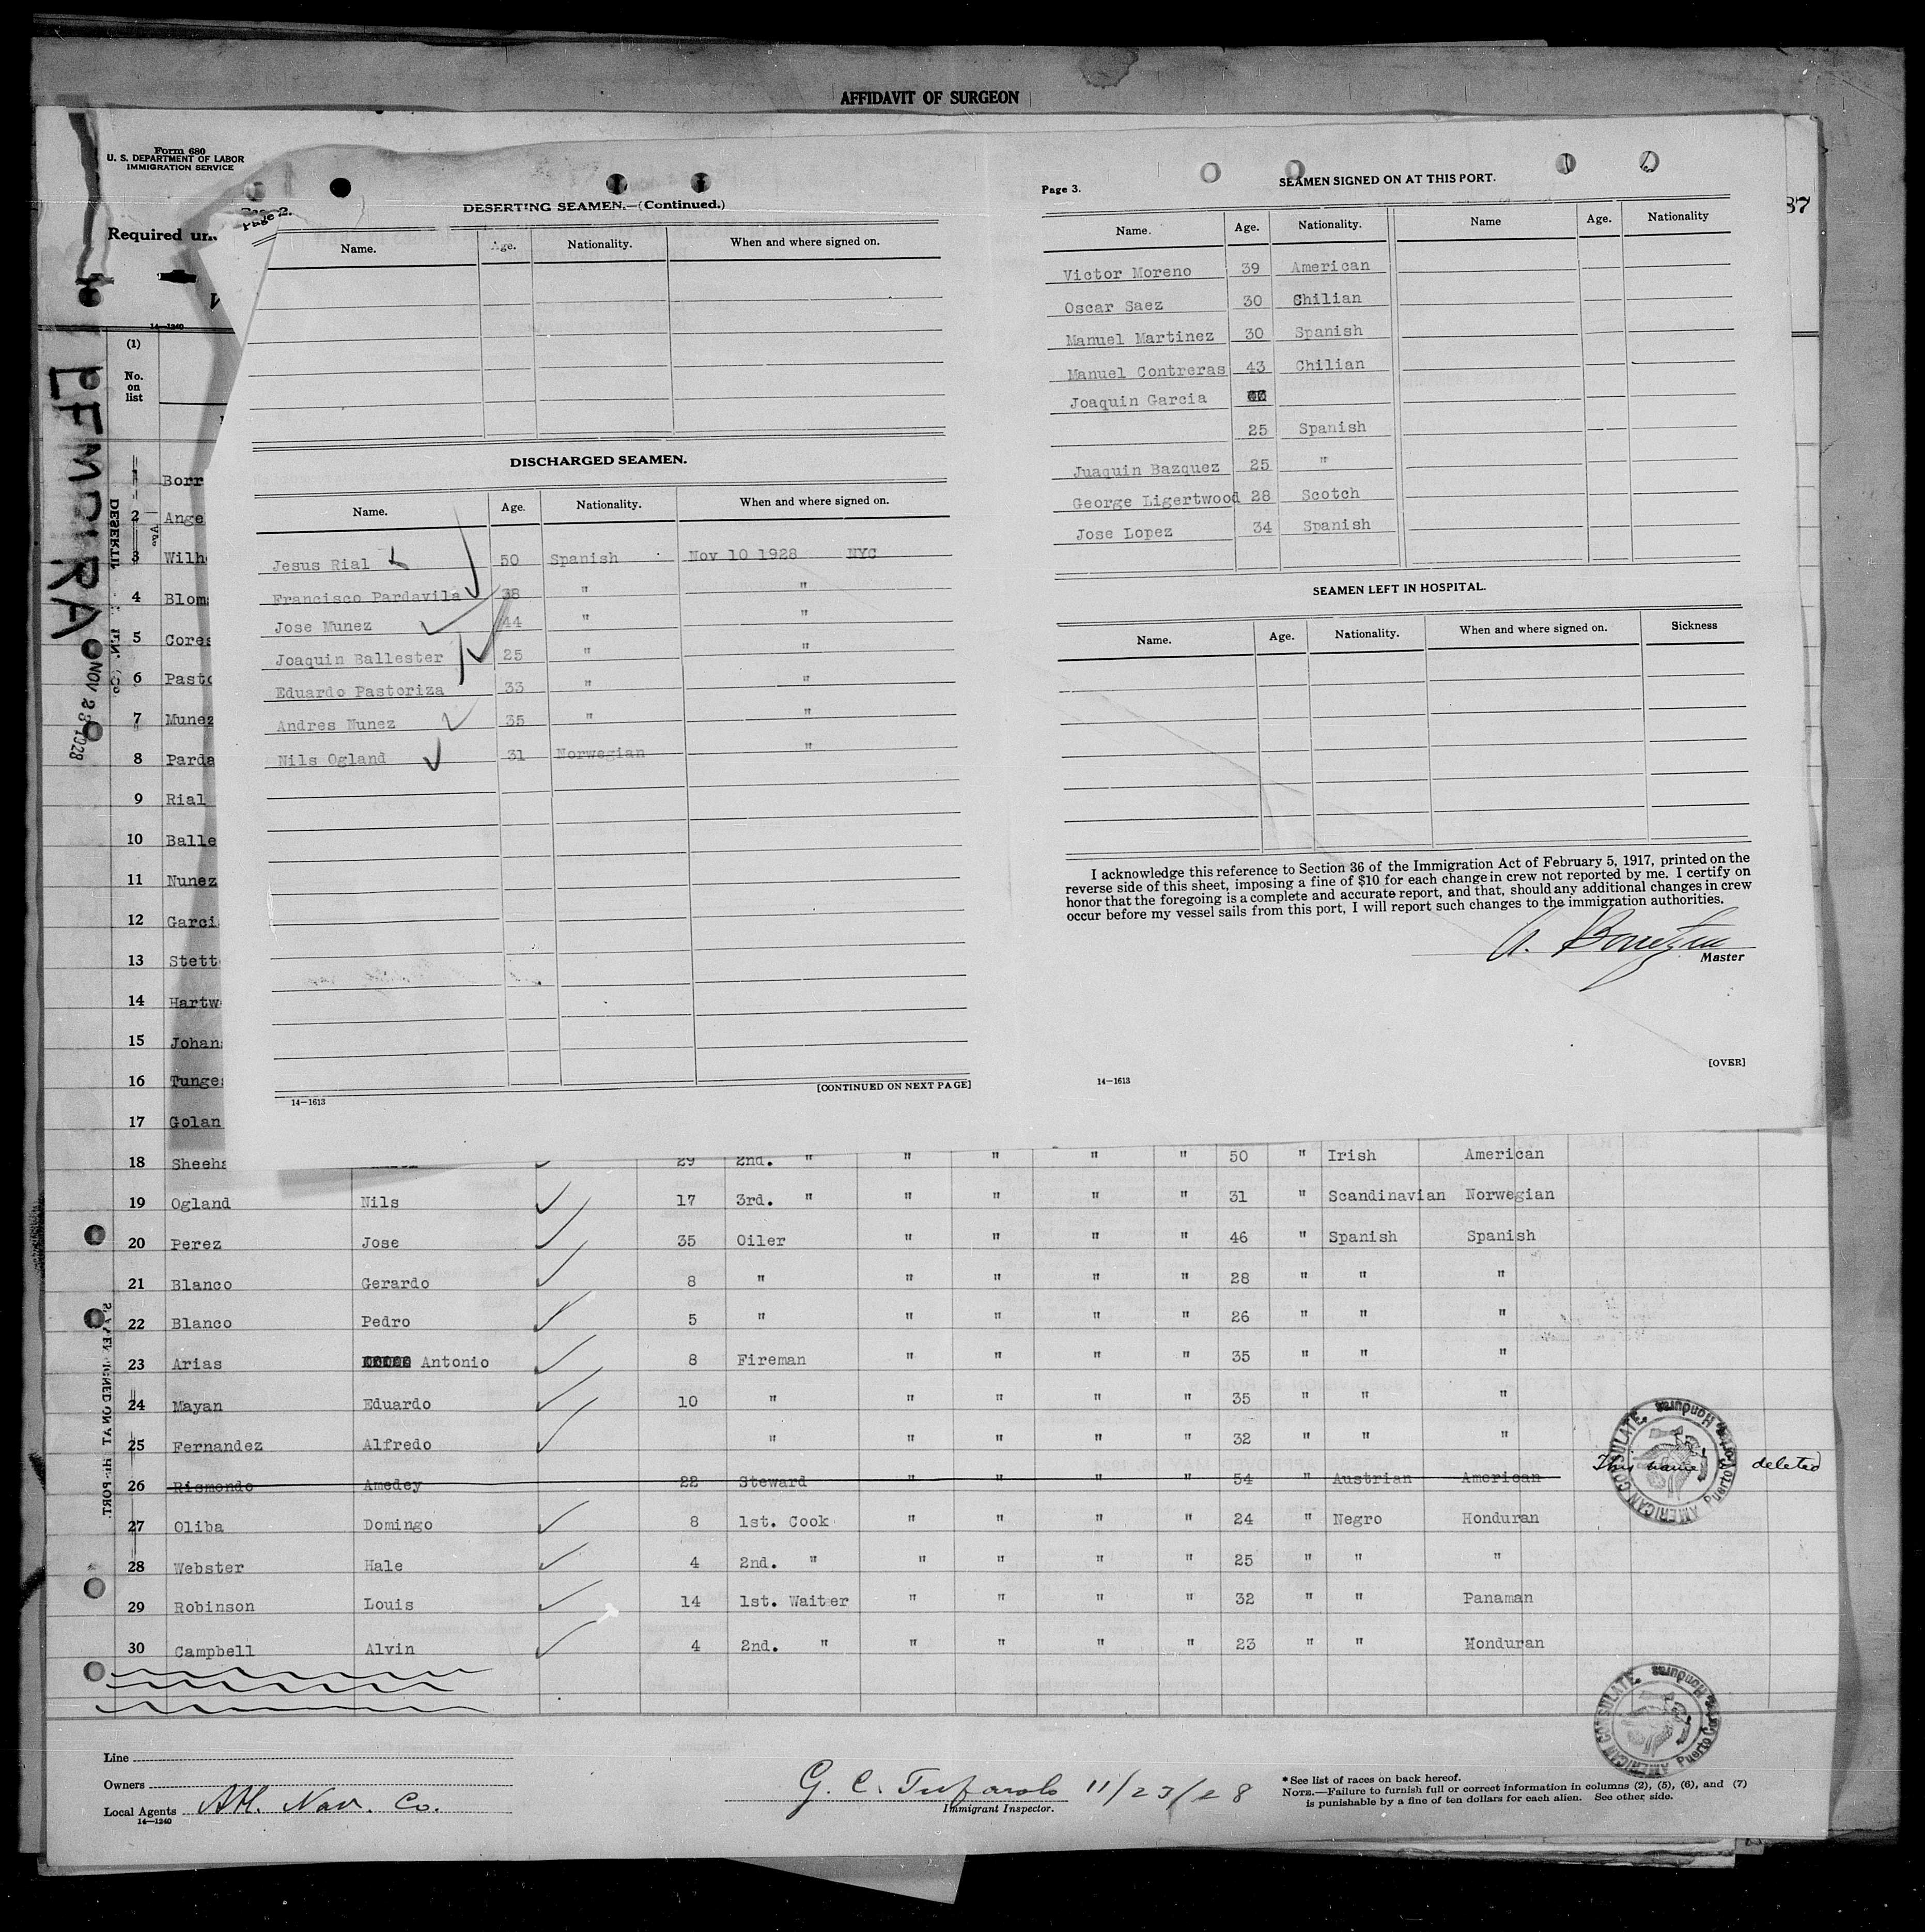 AFFIDAVIT OF SURGEON
Form 680
U. S. DEPARTMENT OF LABOR
IMMIGRATION SERVICE
Required un
14—1240
(1)
No.
on
list
87
LEMPIRA
NOV 23 1928
Page 2.
DESERTING SEAMEN.—(Continued.)
Name. Age. Nationality. When and where signed on.
DISCHARGED SEAMEN.
Name. Age. Nationality. When and where signed on.
Jesus Rial 50 Spanish Nov 10 1928 NYC
Francisco Pardavila 38 " "
Jose Munez 44 " "
Joaquin Ballester 25 " "
Eduardo Pastoriza 33 " "
Andres Nunez 35 " "
Nils Ogland 31 Norwegian "
[CONTINUED ON NEXT PAGE]
14—1613
Page 3.
SEAMEN SIGNED ON AT THIS PORT.
Name. Age. Nationality. Name Age. Nationality
Victor Moreno 39 American
Oscar Saez 30 Chilian
Manuel Martinez 30 Spanish
Manuel Contreras 43 Chilian
Joaquin Garcia
25 Spanish
Juaquin Bazquez 25 "
George Ligertwood 28 Scotch
Jose Lopez 34 Spanish
SEAMEN LEFT IN HOSPITAL.
Name. Age. Nationality. When and where signed on. Sickness
I acknowledge this reference to Section 36 of the Immigration Act of February 5, 1917, printed on the
reverse side of this sheet, imposing a fine of $10 for each change in crew not reported by me. I certify on
honor that the foregoing is a complete and accurate report, and that, should any additional changes in crew
occur before my vessel sails from this port, I will report such changes to the immigration authorities.
Master
[OVER]
14—1613
1 Borr
2 Ange
3 Wilh
4 Blom
5 Cores
6 Pasto
7 Munez
8 Parda
9 Rial
10 Balle
11 Nunez
12 Garci
13 Stett
14 Hartw
15 Johan
16 Tunge
17 Golan
18 Sheeh 29 2nd. " " " " " 50 " Irish American
19 Ogland Nils 17 3rd. " " " " " 31 " Scandinavian Norwegian
20 Perez Jose 35 Oiler " " " " 46 " Spanish Spanish
21 Blanco Gerardo 8 " " " " " 28 " " "
22 Blanco Pedro 5 " " " " " 26 " " "
23 Arias Antonio 8 Fireman " " " " 35 " " "
24 Mayan Eduardo 10 " " " " " 35 " " "
25 Fernandez Alfredo " " " " " 32 " " "
26 Rismondo Amedey 22 Steward " " " " 54 " Austrian American This name is deleted
27 Oliba Domingo 8 1st. Cook " " " " 24 " Negro Honduran
28 Webster Hale 4 2nd. " " " " " 25 " " "
29 Robinson Louis 14 1st. Waiter " " " " 32 " " Panaman
30 Campbell Alvin 4 2nd. " " " " " 23 " " Honduran
AMERICAN CONSULATE. Puerto Cortes, Honduras
AMERICAN CONSULATE. Puerto Cortes, Honduras
Line
Owners
Local Agents Atl. Nav. Co.
14—1240
11/23/28
Immigrant Inspector.
* See list of races on back hereof.
NOTE.—Failure to furnish full or correct information in columns (2), (5), (6), and (7)
is punishable by a fine of ten dollars for each alien. See other side.